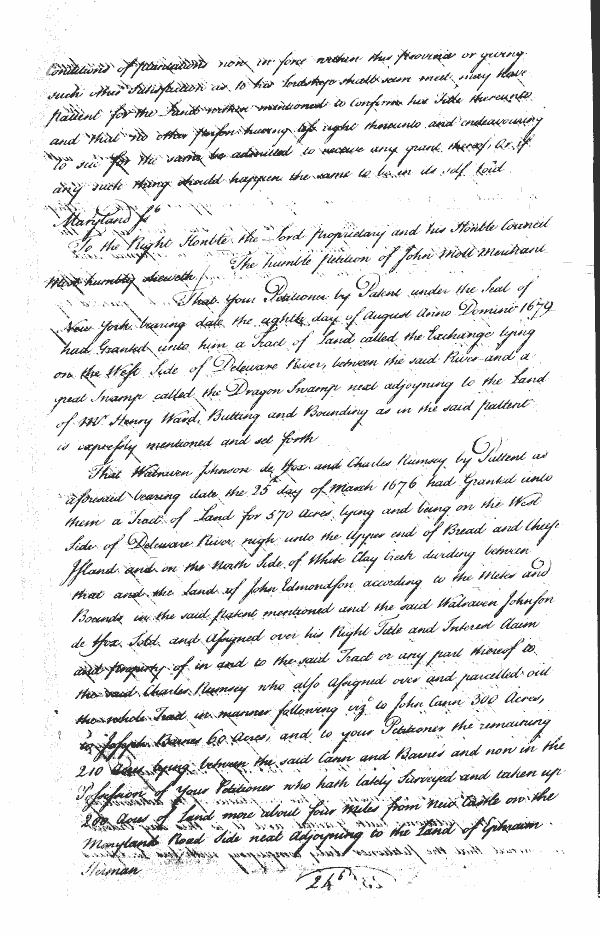 Conditions of plantations now in force within this Province or giving
such other Satisfaction as to his Lordship shall seem meet, may have
pattent for the Land within mentioned to confirm his Title thereunto
and that no other person having right thereunto and endeavouring
to sue for the same be admitted to receive any grant thereof, Or if
any such thing should happen the same to be in its self Void
Maryland
To the Right Honble the Lord Proprietary and his Honble Council
The humble Petition of John Moll Merchant
Most humbly sheweth
That Your Petitioner by Patent under the Seal of
New York bearing date the eighth day of August Anno Domino 1679
had Granted unto him a Tract of Land called the Exchange lying
on the West Side of Deleware River, between the said River and a
great Swamp called the Dragon Swamp next adjoyning to the Land
of Mr Henry Ward, Butting and Bounding as in the said pattent
is expressly mentioned and set forth
That Walraven Johnson de Fox and Charles Rumsey by Pattent as
aforesaid bearing date the 25th day of March 1676 had Granted unto
them a Tract of Land for 570 Acres lying and being on the West
Side of Deleware River nigh unto the upper end of Bread and Cheese
Island and on the North Side of White Clay Creek dividing between
that and the Land of John Edmondson according to the Metes and
Bounds in the said patent mentioned and the said Walraven Johnson
de Fox Sold and Assigned over his Right Title and Interest Claim
and property of in and to the said Tract or any part thereof to
the said Charles Rumsey who also assigned over and parcelled out
the whole Tract in manner following vizt to John Cann 300 Acres,
to Joseph Barnes 60 Acres, and to your Petitioner the remaining
210 Acres lying between the said Cann and Barnes and now in the
Possession of your Petitioner who hath lately Surveyed and taken up
200 Acres of Land more about four Miles from New Castle on the
Maryland Road Side next Adjoyning to the Land of Ephraim
Herman
246